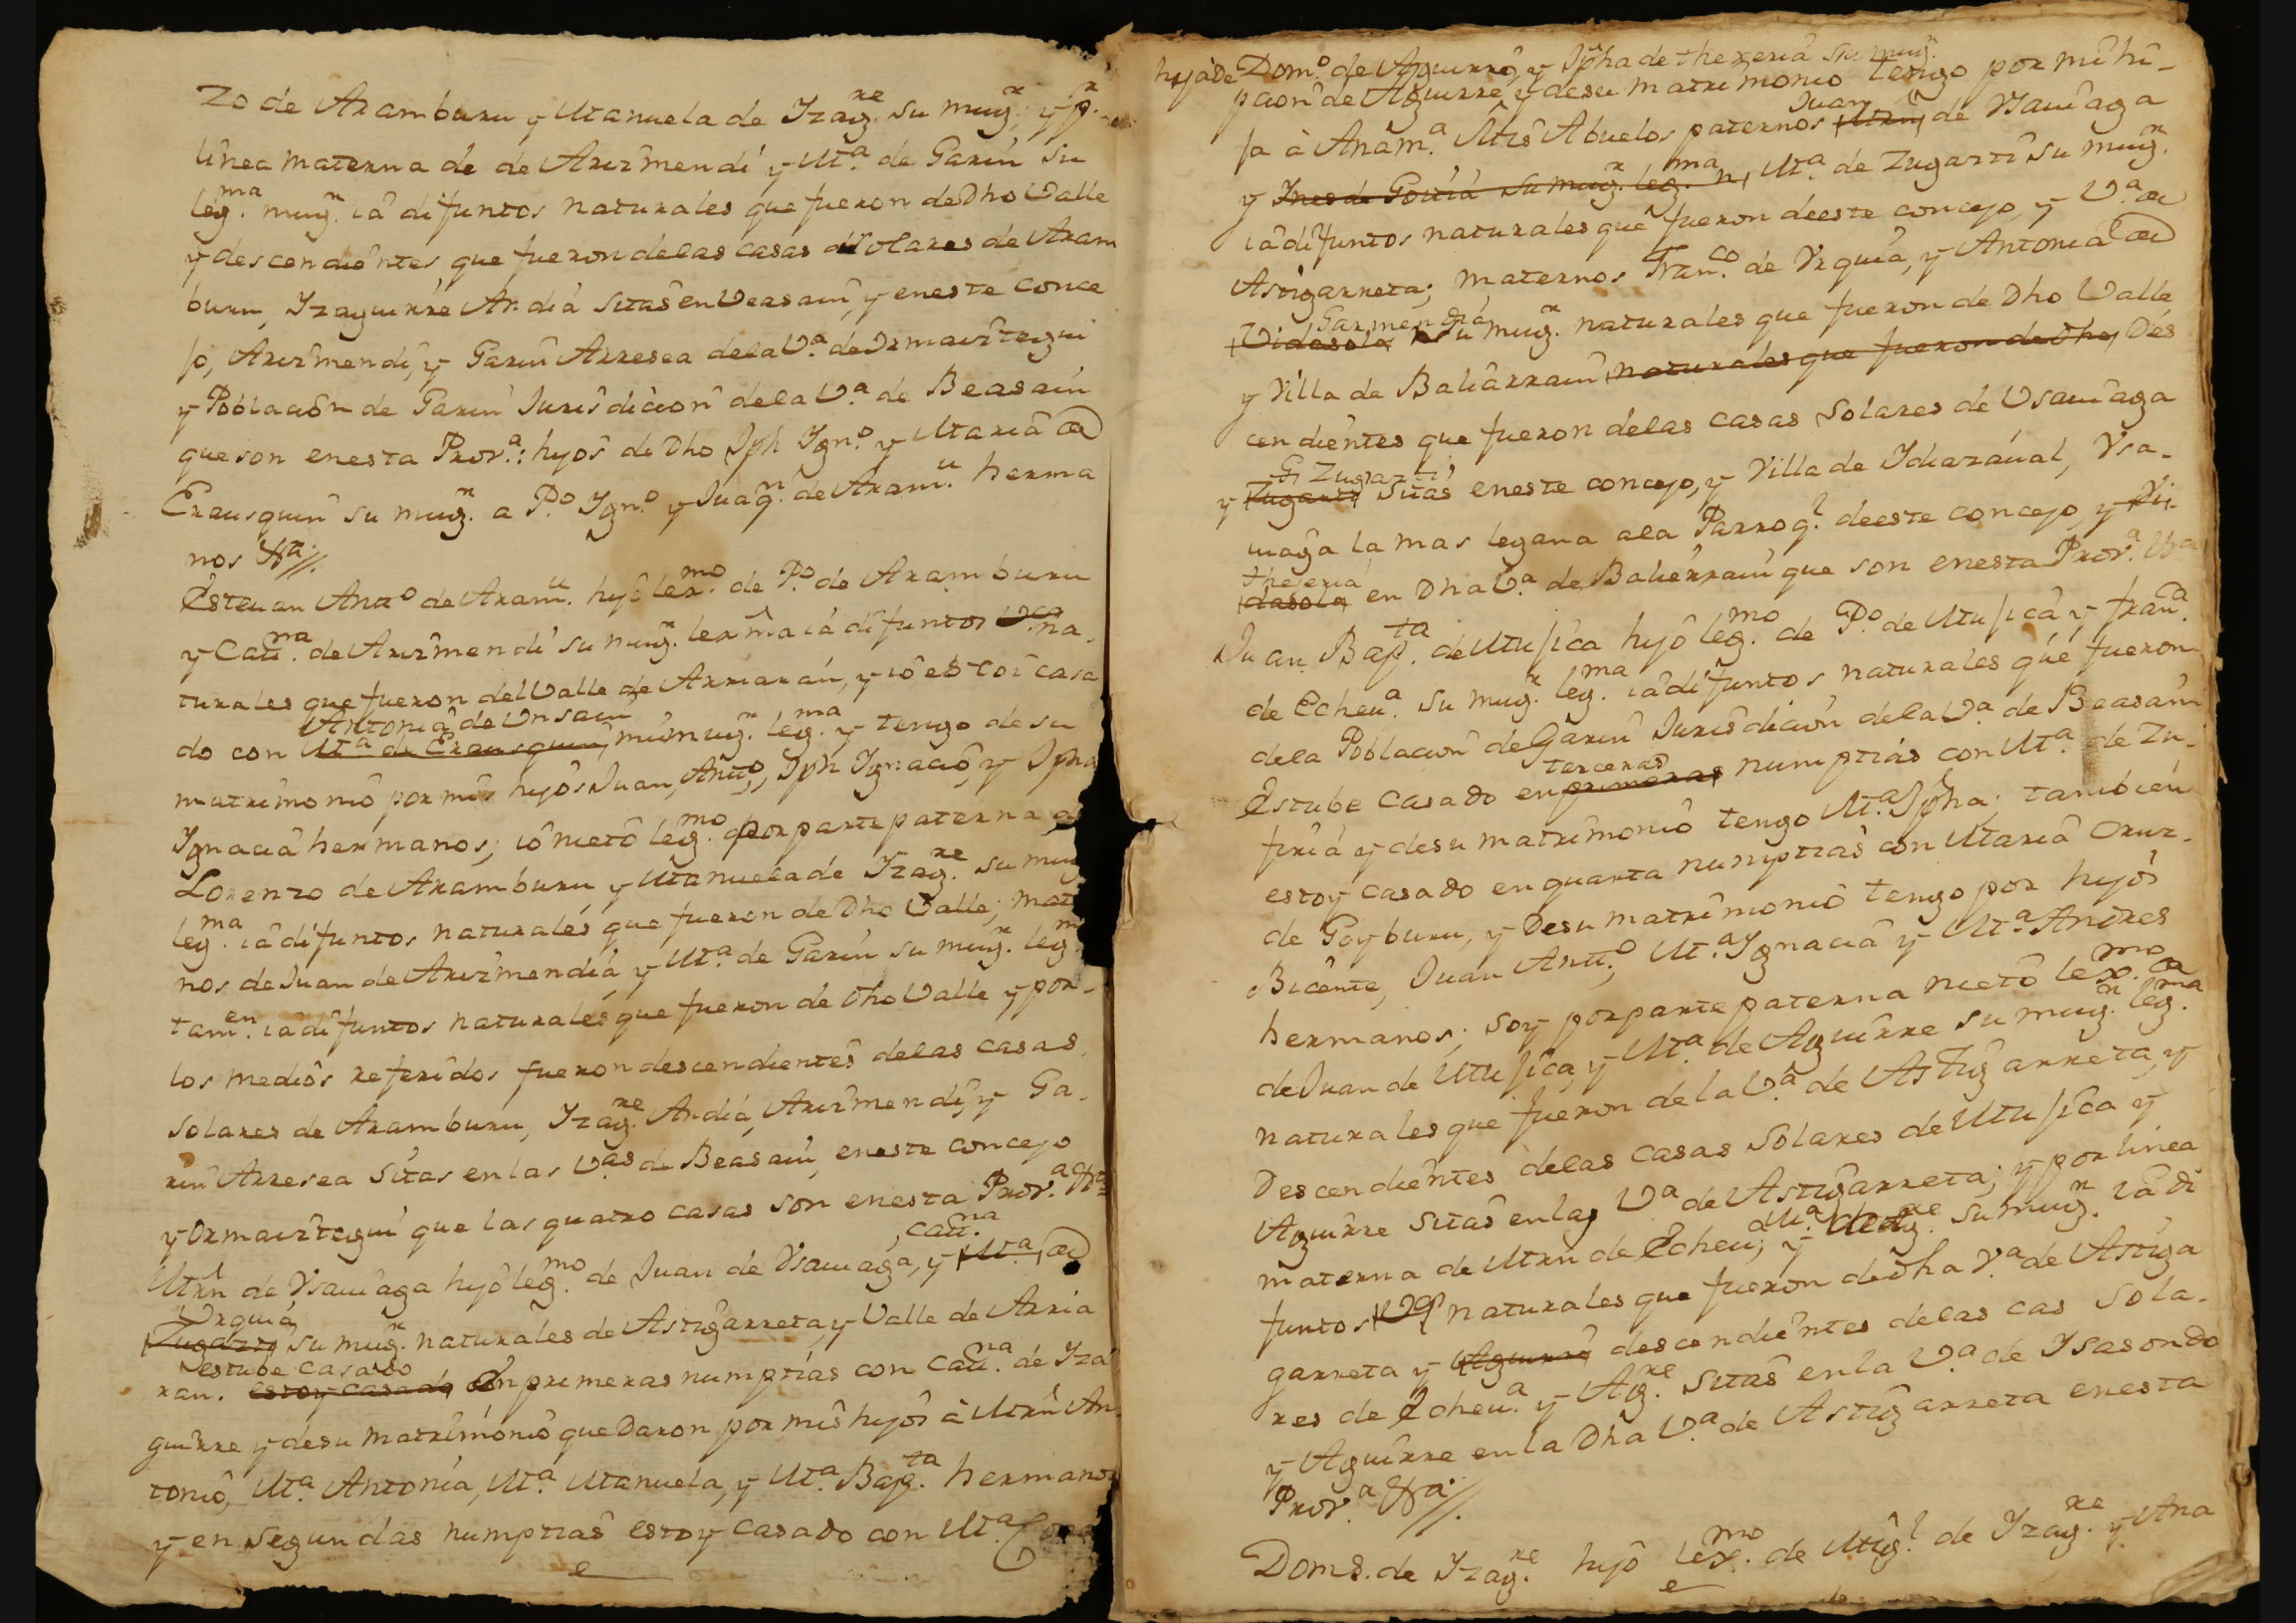 zo de Aramburu y Manuela de Yzag.re su mug.r, y p.r
linea materna de de Arizmendi y M.a de Garin su
leg.ma mug.r iâ difuntos naturales que fueron de Dho Valle
y descendientes que fueron de las casas solares de Aram
buru, Yzaguirre Ardia sitas en Veasain, y en este conce
jo, Arizmendi, y Garin Arresea de la V.a de Ormaiztegui
y Poblacion de Garin Jurisdicion de la V.a de Beasain
que son en esta Prov.a: hijos de Dho Jph Ygn.o y Maria de
Erausquin su mug.r a P.o Ygn.o y Juaq.n de Aram.u herma
nos &a//.
Estevan Ant.o de Aram.u hijo lex.mo de P.o de Aramburu
y Cat.na de Arizmendi su mug.r lexma iâ difuntos na-
turales que fueron del Valle de Arriarán, y iô estoi casa
Antonia de Unsain
do con M.a de Erausquin, mi mug.r leg.ma y tengo de su
matrimonio por mis hijos Juan, Ant.o, Jph Ygnacio, y Jpha
Ygnacia hermanos; iô nieto leg.mo por parte paterna de
Lorenzo de Aramburu, y Manuela de Yzag.re su mug
leg.ma iâ difuntos naturales que fueron de Dho Valle; mater
nos de Juan de Arizmendia, y M.a de Garin su mug.r leg.m
tam.en iâ difuntos naturales que fueron de Dho Valle y por-
los medios referidos fueron descendientes de las casas
solares de Aramburu, Yzag.re Ardia, Arizmendi, y Ga-
rin Arresea sitas en las V.as de Beasain, en este concejo
y Ormaiztegui que las quatro casas son en esta Prov.a &a
Cat.na
Mrn de Ysauiaga hijo leg.mo de Juan de Ysauiaga, y M.a de
Urquia
Zugarti su mug.r naturales de Astigarreta, y Valle de Arria
estube casado
ran. estoy casado en primeras numptias con Cat.na de Yza
guirre y de su matrimonio quedaron por mis hijos à Mrn An
tonio, M.a Antonia, M.a Manuela, y M.a Bap.ta hermanos
y en segundas numptias estoy casado con M.a
hija de Dom.o de Aguirre, y Jpha de thexeria su mug.r
pcion de Aguirre, y de su matrimonio tengo por mi hi-
Juan
ja à Ana M.a Mis Abuelos paternos Mrn de Ysauiaga
y Ines de Goitia su mug.r leg.ma, M.a de Zugarti su mug.r
iâ difuntos naturales que fueron de este concejo, y V.a de
Astigarreta; maternos Fran.co de Urquia, y Antonia de
Garmendia
Vidasola su mug.r naturales que fueron de Dho Valle
y Villa de Baliarrain naturales que fueron de Dho Des
cendientes que fueron de las casas solares de Usauiaga
Zugarti
y Zugarti sitas en este concejo, y Villa de Ydiazaual, Ysa-
uiaga la mas legana a la Parroq.l de este concejo, y Vi-
thexeria
dasola en Dha V.a de Balierrain que son en esta Prov.a &a
Juan Bap.ta de Mujica hijo leg.mo de P.o de Mujica y Fran.ca
de Echeu.a su mug.r leg.ma iâ difuntos naturales que fueron
de la Poblacion de Garin Jurisdicion de la V.a de Beasain
terceras
Estube casado en primeras numptias con M.a de Zu-
firia y de su matrimonio tengo M.a Jpha; tambien
estoy casado en quarta numptias con Maria Cruz-
de Goyburu, y de su matrimonio tengo por hijos
Bicente, Juan Ant.o, M.a Ygnacia y M.a Andres
hermanos; soy por parte paterna nieto lex.mo
de Juan de Mujica, y M.a de Aguirre su mug.r leg.ma
naturales que fueron de la V.a de Astigarreta, y
Descendientes de las casas solares de Mujica y
Aguirre sitas en las V.a de Astigarreta; y por linea
materna de Mrn de Echeu; y M.a de Ag.re su mug.r iâ di
funtos naturales que fueron de Dha V.a de Astiga
garreta y Aguirre descendientes de las cas sola-
res de Echeu.a y Ag.re sitas en la V.a de Ysasondo
y Aguirre en la Dha V.a de Astigarreta en esta
Prov.a &a//.
Doms. de Yzag.re hijo lex.mo de Mig.l de Yzag.re y Ana